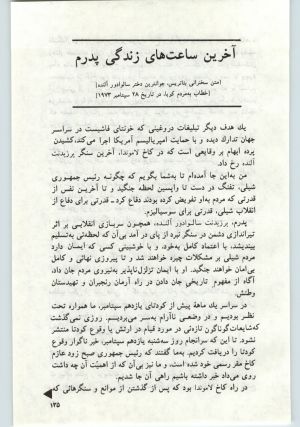 آخرین ساعت‌های زندگی پدرم
[متن سخنرانی بئاتریس، جوانترین دختر سالوادور آلنده]
[خطاب به‌مردم کوبا، در تاریخ ۲۸ سپتامبر ۱۹۷۳]
یك هدف دیگر تبلیغات دروغینی که خونتای فاشیست در سراسر
جهان تدارك دیده و با حمایت امپریالیسم آمریکا اجرا می‌کند، کشیدن
پرده ابهام بر وقایعی است که در کاخ لاموندا، آخرین سنگر پرزیدنت
آلنده رخ داد.
من به‌این جا آمده‌ام تا به‌شما بگویم که چگونه رئیس جمهوری
شیلی، تفنگ در دست تا واپسین لحظه جنگید و تا آخرین نفس از
قدرتی که مردم به‌او تفویض کرده بودند دفاع کرد - قدرتی برای دفاع از
انقلاب شیلی، قدرتی برای سوسیالیزم.
پدرم، پرزیدنت سالوادور آلنده، همچون سربازی انقلابی بر اثر
تیراندازی دشمن در سنگر نبرد از پای در آمد بی‌آن که لحظه‌ئی به‌تسلیم
بیندیشد، با اعتماد کامل به‌خود، و با خوشبینی کسی که ایمان دارد
مردم شیلی بر مشکلات چیره خواهند شد و تا پیروزی نهائی کامل
بی‌امان خواهند جنگید. او با ایمان تزلزل‌ناپذیر به‌نیروی مردم جان داد،
آگاه از مفهوم تاریخی جان دادن در راه آرمان رنجبران و تهیدستان
وطنش.
در سراسر یك ماهۀ پیش از کودتای یازدهم سپتامبر، ما همواره تحت
نظر بودیم و در وضعی ناآرام به‌سر می‌بردیم. روزی نمی‌گذشت
که‌شایعات‌گوناگون تازه‌ئی در مورد قیام در ارتش یا وقوع کودتا منتشر
نشود. تا این که سرانجام روز سه‌شنبه یازدهم سپتامبر، خبر ناگوار وقوع
کودتا را دریافت کردیم. به‌ما گفتند که رئیس جمهوری صبح زود عازم
کاخ مقر رسمی خود شده است، و ما نیز بی‌آن که از اهمیت آن چه داشت
روی می‌داد خبر داشته باشیم راهی آن جا شدیم.
در راه کاخ لاموندا بود که پس از گذشتن از موانع و سنگرهائی که
۱۳۵